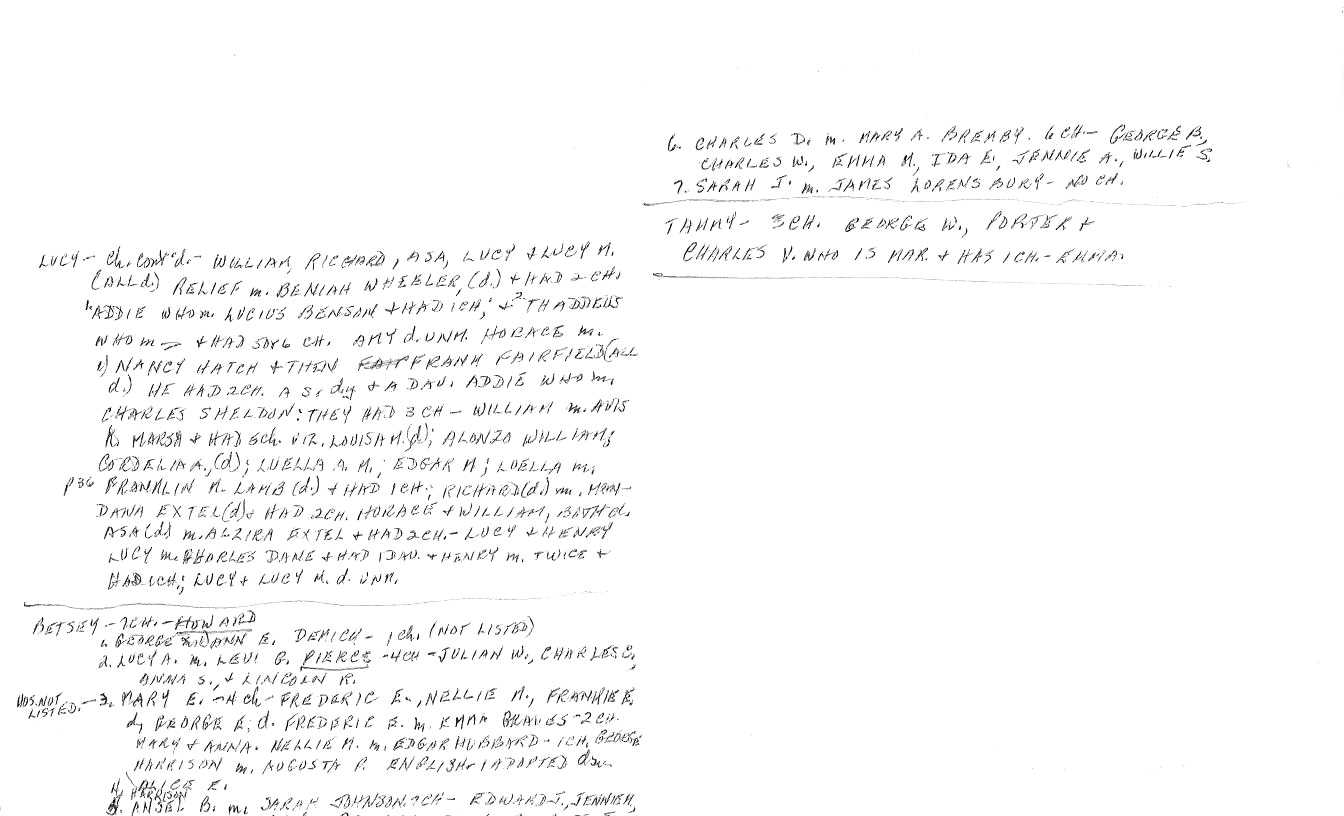 LUCY - Ch. Cont'd. - WILLIAM, RICHARD, ASA, LUCY + LUCY M.
(ALL d.) RELIEF m. BENIAH WHEELER, (d.) + HAD 2 CH.
1. ADDIE WHO m. LUCIUS BENSON + HAD 1 CH; + 2 THADDEUS
WHO m — + HAD 5 or 6 CH. AMY d. UNM. HORACE m.
1) NANCY HATCH + THEN FRANK FAIRFIELD (ALL
d.) HE HAD 2 CH. A S. d.y + A DAU. ADDIE WHO m.
CHARLES SHELDON: THEY HAD 3 CH - WILLIAM m. AVIS
R. MARSH + HAD 5 ch. VIZ. LOUISA M. (d); ALONZO WILLIAM;
CORDELIA A., (d); LUELLA A. M.; EDGAR M; LUELLA m.
p36 FRANKLIN M. LAMB (d.) + HAD 1 CH.; RICHARD (d.) m. MAN-
DANA EXTEL (d) + HAD 2 CH. HORACE + WILLIAM, BOTH d.
ASA (d) m. ALZIRA EXTEL + HAD 2 CH. - LUCY + HENRY
LUCY m. CHARLES DANE + HAD 1 DAU. + HENRY m. TWICE +
HAD 1 CH.; LUCY + LUCY M. d. UNM.
BETSEY - 7 CH. - HOWARD
1. GEORGE m. ANN E. DEMICK - 1 ch. (NOT LISTED)
2. LUCY A. m. LEVI G. PIERCE - 4 CH - JULIAN W., CHARLES C.,
ANNA S., + LINCOLN R.
HUS. NOT LISTED. - 3. MARY E. - 4 ch - FREDERIC E., NELLIE M., FRANKIE E.
d, GEORGE E. d. FREDERIC E. m. EMMA GRAVES - 2 CH.
MARY + ANNA. NELLIE M. m. EDGAR HUBBARD - 1 CH. GEORGE
HARRISON m. AUGUSTA P. ENGLISH - 1 ADOPTED dau.
4. HARRISON ALICE E.
5. ANSEL B. m. SARAH JOHNSON. 7 CH - EDWARD J., JENNIE H,
6. CHARLES D. m. MARY A. BREMBY. 6 CH - GEORGE B.,
CHARLES W., EMMA M., IDA E., JENNIE A., WILLIE S.
7. SARAH J. m. JAMES LORENSBURY - NO CH.
TAMMY - 3 CH. GEORGE W., PORTER +
CHARLES V. WHO IS MAR. + HAS 1 CH. - EMMA.